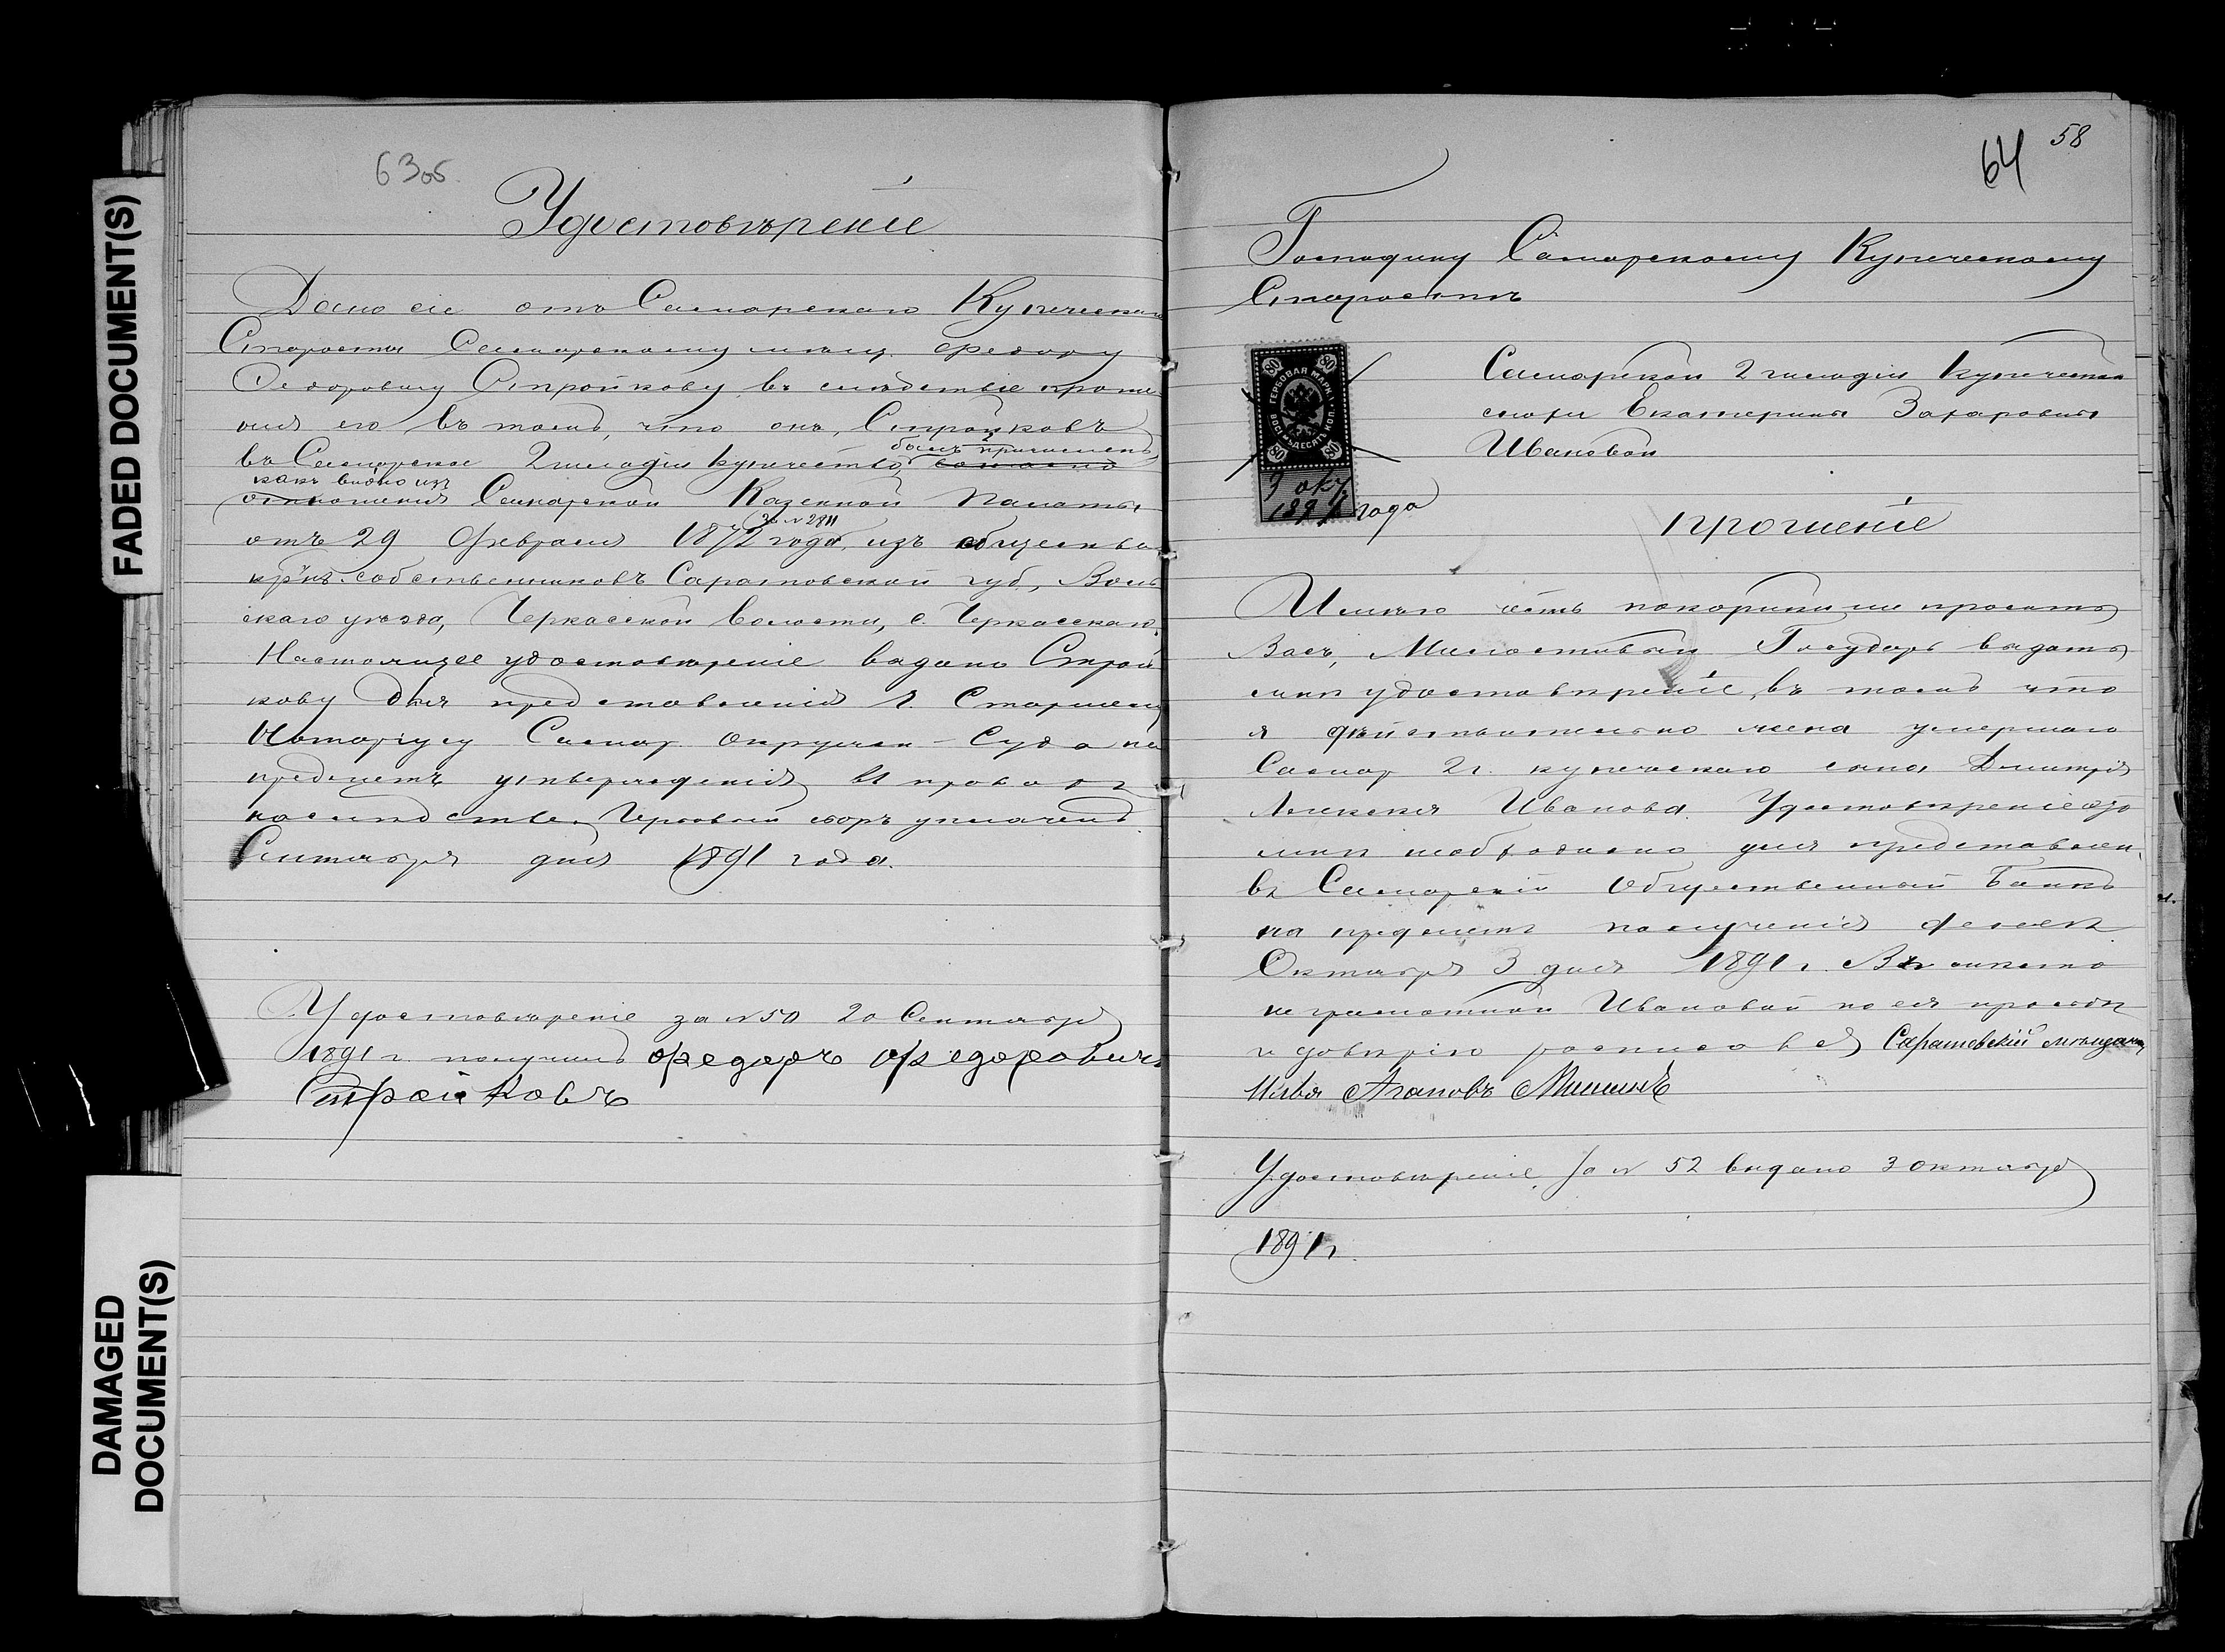 FADED DOCUMENT(S)
DAMAGED
DOCUMENT(S)
63об.
Удостовѣреніе
Дано сіе отъ Самарскаго Купеческаго
Старосты Самарскому мѣщ. Ѳедору
Ѳедоровичу Стройкову, въ слѣдствіе проше
нія его въ томъ, что онъ, Стройковъ
былъ причисленъ
въ Самарское 2 гильдіи купечество, согласно
какъ видно изъ
отношенія Самарской Казенной Палаты
за № 2811
отъ 29 Февраля 1872 года, изъ общества
кр-нъ собственниковъ Саратовской губ., Воль
скаго уѣзда, Черкасской волости, с. Черкасскаго.
Настоящее удостовѣреніе выдано Строй
кову для представленія Г. Старшему
Нотаріусу Самар. Окружн. Суда на
предметъ утвержденія въ правахъ
наслѣдства. Гербовый сборъ уплаченъ
Сентября дня 1891 года.
Удостовѣреніе за № 50 20 Сентября
1891 г. получилъ Ѳедоръ Ѳедоровичъ
Стройковъ
64 58
Господину Самарскому Купеческому
Старостѣ
80 80
ГЕРБОВАЯ МАРКА
ВОСЕМЬДЕСЯТЪ КОП.
80 80
3 окт.
1891 года
Самарской 2 гильдіи купеческой
снохи Екатерины Захаровны
Ивановой
прошеніе
Имѣю честь покорнѣйше просить
Васъ, Милостивый Государь выдать
мнѣ удостовѣреніе, въ томъ что
я дѣйствительно жена умершаго
Самар 2 г. купеческаго сына Дмитрія
Алексѣя Иванова. Удостовѣреніе это
мнѣ необходимо для представлен.
въ Самарскій Общественный Банкъ
на предметъ полученія денегъ
Октября 3 дня 1891 г. Вмѣсто
неграмотной Ивановой по ея просьбѣ
и довѣрію росписался Саратовскій мѣщанинъ
Илья Агаповъ Мишинъ
Удостовѣреніе за № 52 выдано 3 октября
1891 г.